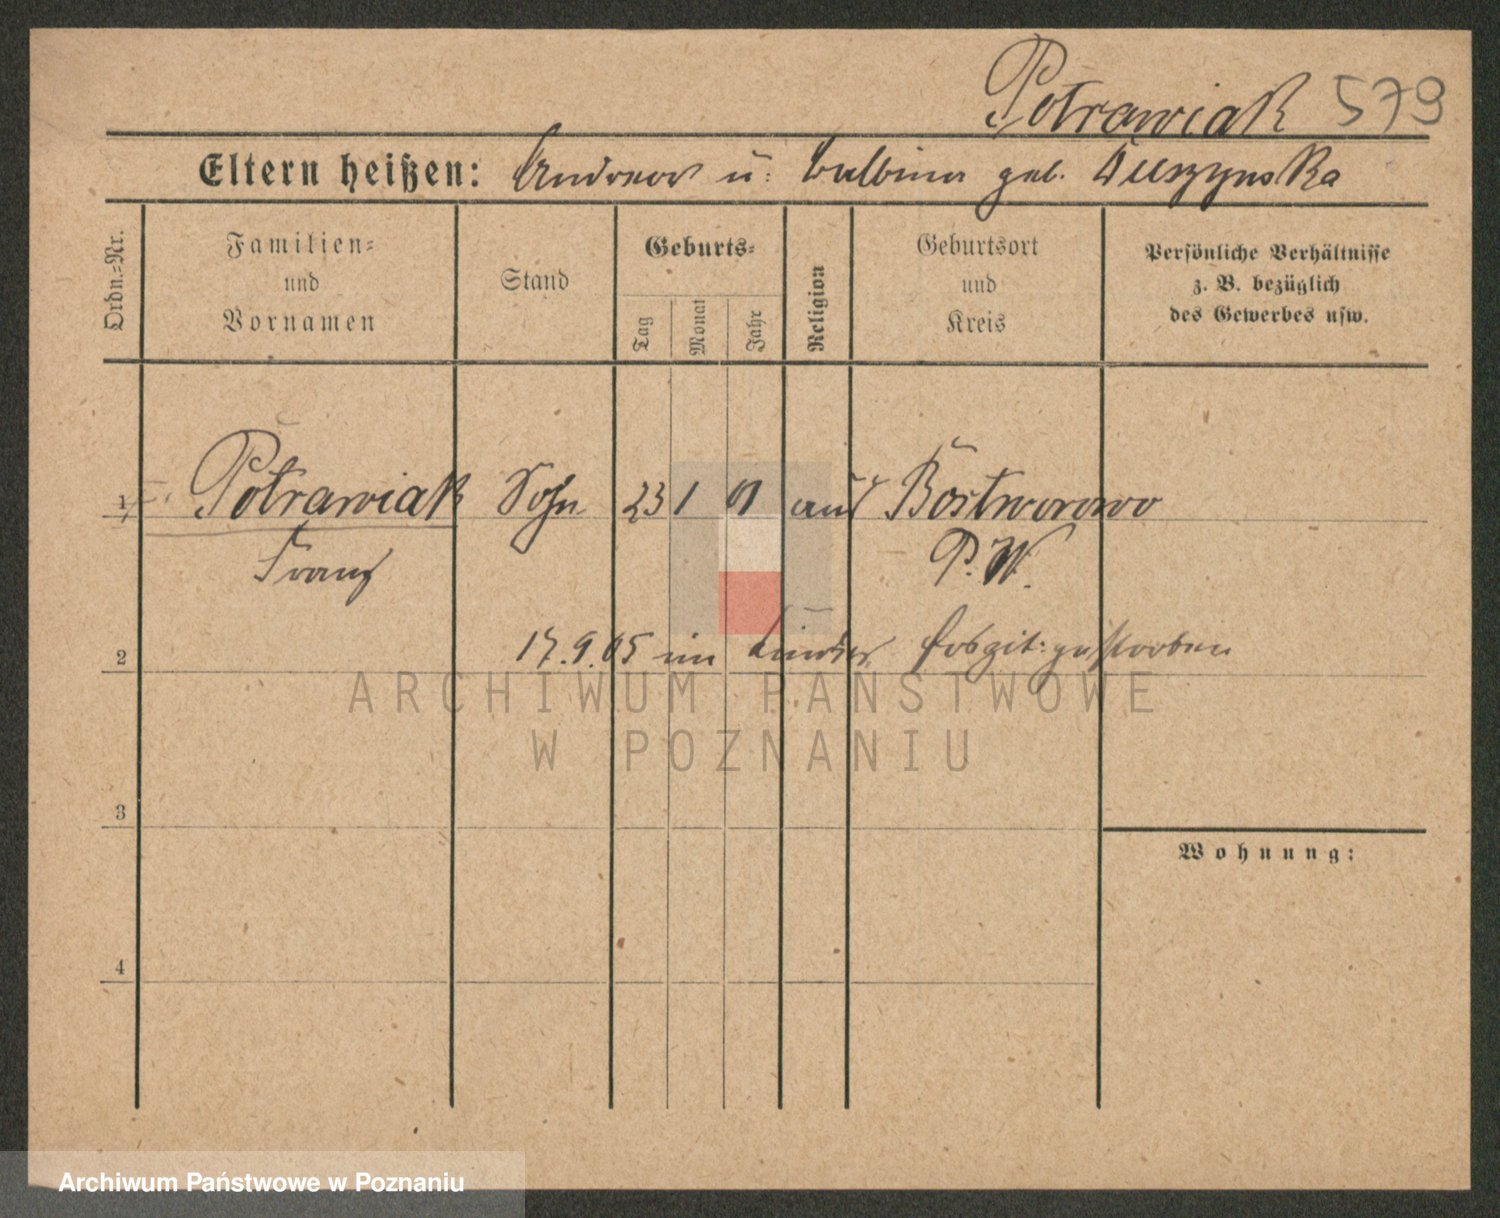 Potrawiak 579
Eltern heißen: Andreas u: Balbina geb. Duszynska
Ordn.=Nr.
Familien=
und
Vornamen
Stand
Geburts=
Tag
Monat
Jahr
Religion
Geburtsort
und
Kreis
Persönliche Verhältnisse
z. B. bezüglich
des Gewerbes usw.
1 Potrawiak Sohn 23 1 01 Bostworowo
Franz P. W.
2 17.9.05 im Kinder Hospit: gestorben
3
Wohnung:
4
ARCHIWUM PAŃSTWOWE
W POZNANIU
Archiwum Państwowe w Poznaniu